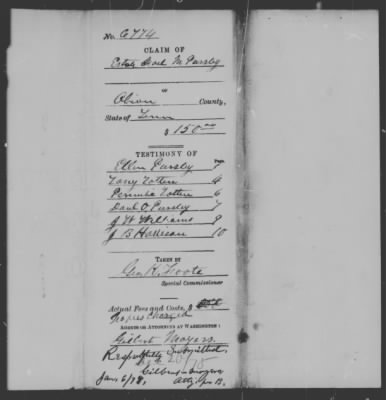 No. 6774
CLAIM OF
Estate Joel M Parsley
"
Obion County,
State of Tenn
$ 150.00
TESTIMONY OF Page
Ellen Parsley
Tony Totten 4
Perninia Totten 6
Davd O. Parsley 7
J W Williams 9
J B Harrison 10
TAKEN BY
Geo. K. Foote
Special Commissioner
Actual Fees and Costs, $
AGENTS OR ATTORNEYS AT WASHINGTON:
Gilbert Moyers.
Respectfully Submitted,
Jan. 6/78. Gilbert Moyers